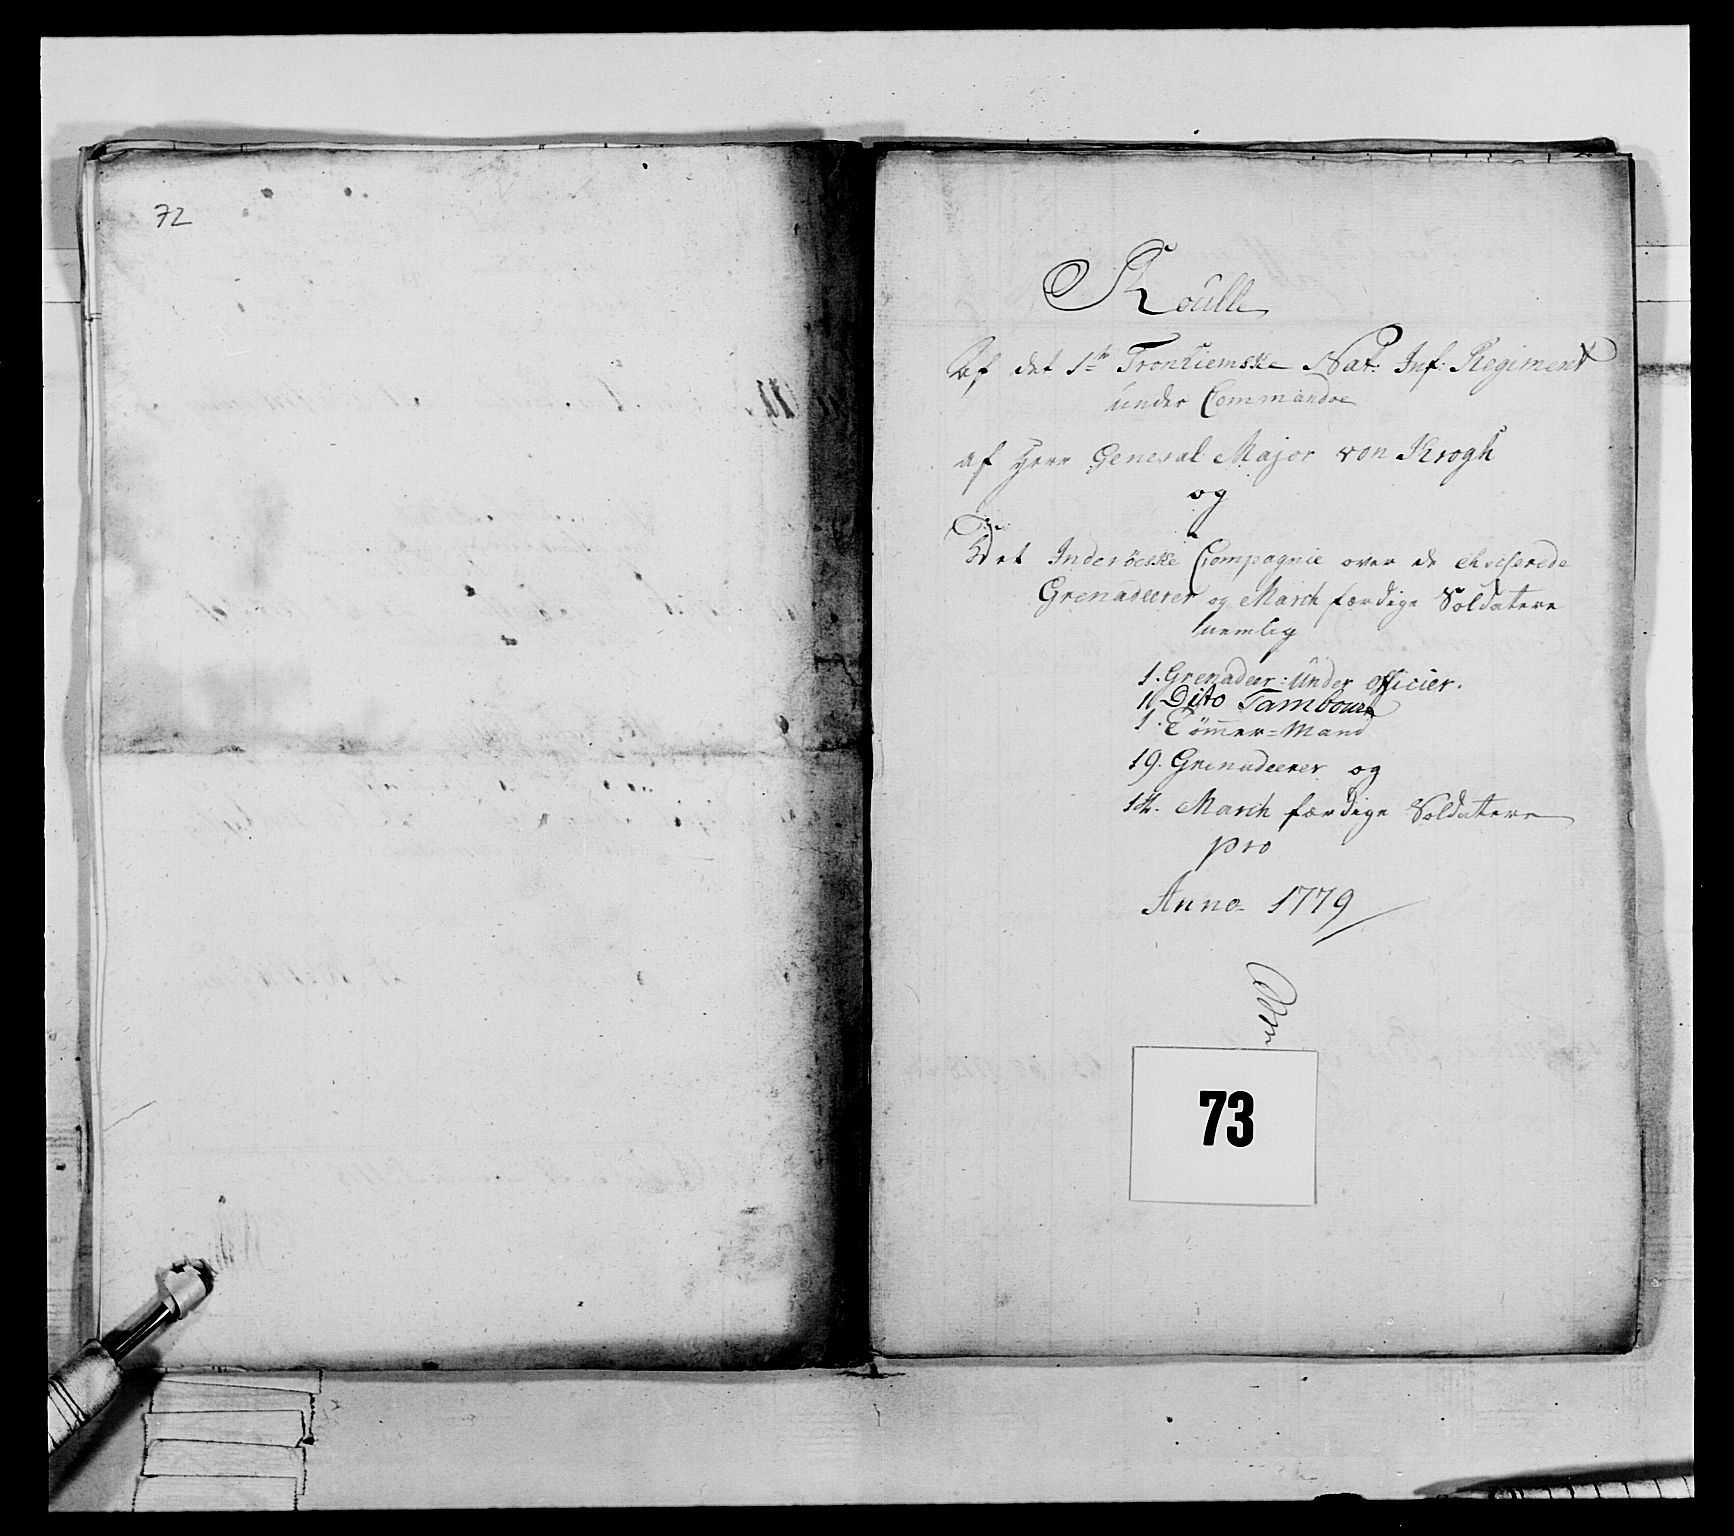 72
Roulle
Af det 1te Tronhiemske Nat: Inf: Regiment
under Commandoe
af Herr General Major von Krogh
og
Det Inderöeske Compagnie over de
Grenadeerer og March færdige Soldatere
nemlig
1. Grenadeer: Under Officier.
1. Dito Tambour
1. Tömer=Mand
19. Grenadeerer og
14. March færdige Soldatere
pro
Anno 1779
73